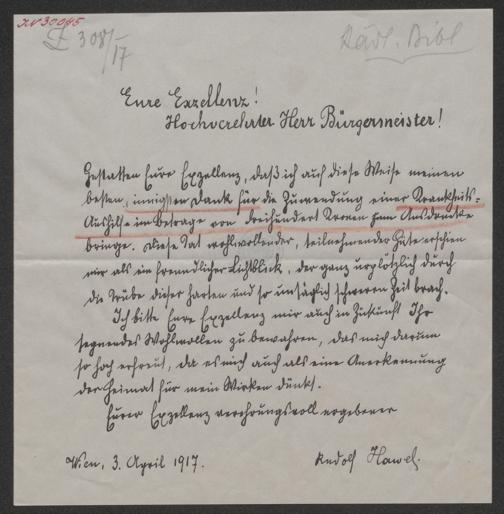 IN 30045
E 308/17
Städt. Bibl.
Eure Exzellenz!
Hochverehrter Herr Bürgermeister!
Gestatten Eure Exzellenz, daß ich auf diese Weise meinen
besten, innigsten Dank für die Zuwendung einer Krankheits-
Aushilfe im Betrage von dreihundert Kronen zum Ausdrucke
bringe. Diese Tat wohlwollender, teilnehmender Güte erschien
mir als ein freundlicher Lichtblick, der ganz urplötzlich durch
die Trübe dieser harten und so unsäglich schweren Zeit brach.
Ich bitte Eure Exzellenz mir auch in Zukunft Ihr
segnendes Wohlwollen zu bewahren, das mich darum
so hoch erfreut, da es mich auch als eine Anerkennung
der Heimat für mein Wirken dünkt.
Eurer Exzellenz verehrungsvoll ergebener
Wien, 3. April 1917.
Rudolf Hawel.